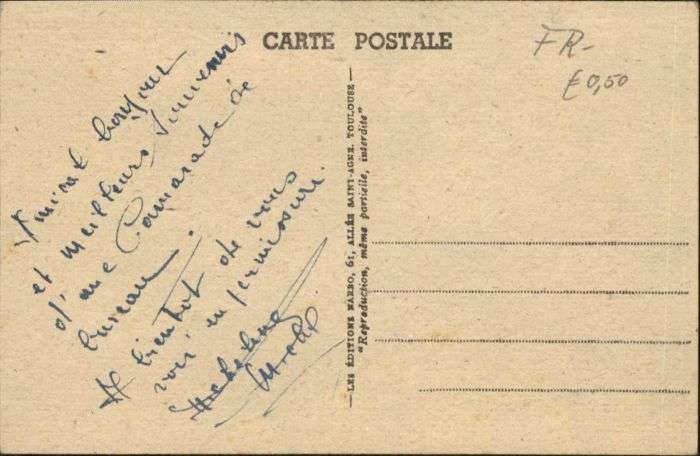 CARTE POSTALE
FR-
€0,50
Amical bonjour
et meilleurs souvenirs
d'une Camarade de
bureau.
A bientot de vous
voir en permission.
Micheline
—LES ÉDITIONS NARBO, 61, ALLÉE SAINT-AGNE. TOULOUSE—
"Reproduction, même partielle, interdite"